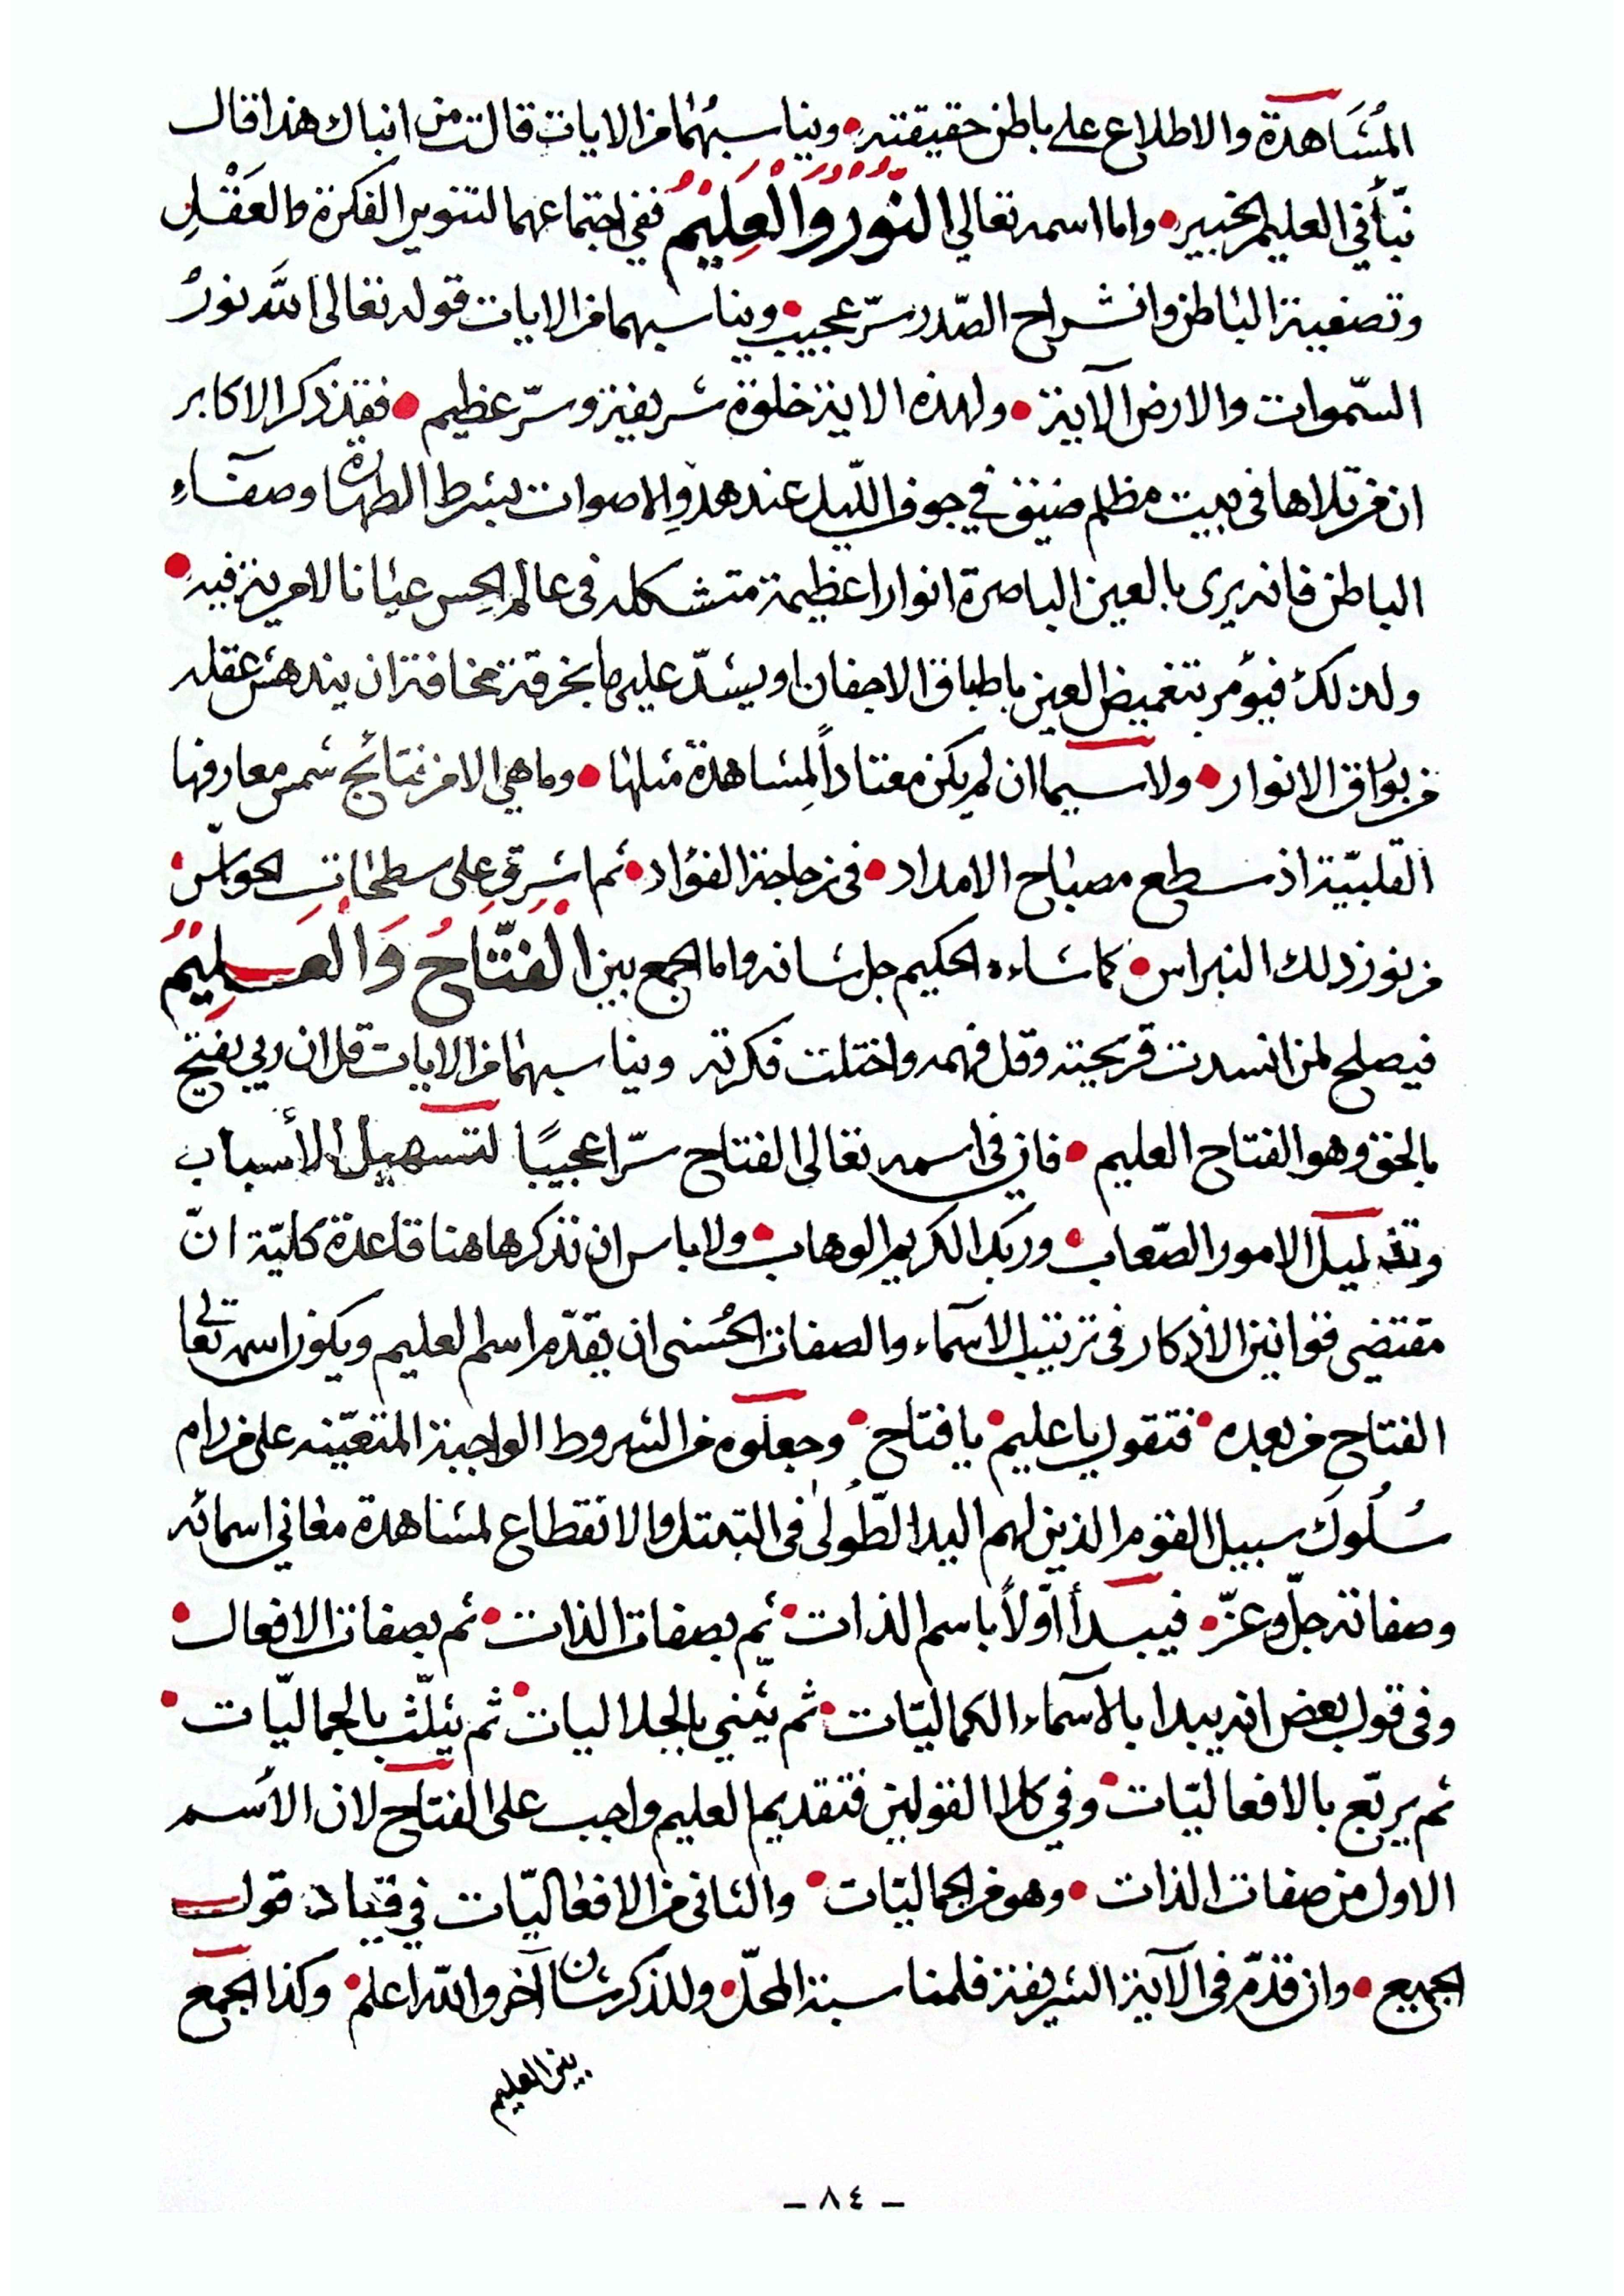 المُشَاهدة والاطلاع على باطن حقيقته • ويناسبهُما من الايات قالت من انباك هذا قال
نبّأني العليم الخبير • واما اسمه تعالى النُّوُرُ وَالْعَلِيْمُ ففي اجتماعهما لتنوير الفكرة والعَقْلِ
وتصفية الباطن وانشراح الصّدر سرّ عجيب • ويناسبهما من الايات قوله تعالى اللَّه نورُ
السّموات والارض الآية • ولهذه الاية خلوة شريفة وسرّ عظيم • فقد ذكر الاكابر
ان من تلاها في بيت مظلم ضيق في جوف اللّيل عند هدوِ الاصوات بشرط الطهارة وصفآءِ
الباطن فانه يرى بالعين الباصرة انوارا عظيمة متشكله في عالم الحِس عيانا لا مرية فيه •
ولذلك فيؤمر بتغميض العين باطباق الاجفان او يشدّ عليها بخرقة مخافة ان يندهش عقله
من بوَارق الانوار • ولا سيما ان لم يكن معتاداً لِمشاهدة مثلها • وما هي الا من نتائج شمس معارفها
القلبيّة اذ سطع مصباح الامداد • في زجاجة الفؤاد • ثم اشرق على سطحات الحواسّ •
من نور ذلك النبراس • كما شاءه الحكيم جل شانه واما الجمع بين الْفَتَّاحُ وَالْعَلِيْمُ
فيصلح لمن انسدت قريحته وقل فهمه واختلت فكرته ويناسبهما من الايات قل ان ربي يفتح
بالحق وهو الفتاح العليم • فان في اسمه تعالى الفتاح سرّا عجيبًا لتسهيل الأسباب
وتذليل الامور الصّعاب • وربك الكريم الوهاب • ولا باس ان نذكرها هنا قاعدة كليّة انّ
مقتضى قوانين الأذكار في ترتيب الاسمآء والصفات الحُسنى ان يقدّم اسم العليم ويكون اسمه تعالى
الفتاح من بعده • فتقول يا عليم • يا فتاح • وجعلوه من الشروط الواجبة المتعيّنه على من رام
سُلُوكَ سبيل القوم الذين لهم اليد الطّولى في التبتل والانقطاع لمشاهدة معاني اسمائه
وصفاته جلّ وعزّ • فيبدأ اوّلاً باسم الذات • ثم بصفات الذات • ثم بصفات الافعال •
وفي قول بعض انه يبدا بالاسمآء الكماليّات • ثم يثني بالجلاليات • ثم يثلّث بالجماليّات •
ثم يربّع بالافعاليّات • وفي كلا القولين فتقديم العليم واجب على الفتاح لان الأسم
الاول من صفات الذات • وهو من الجماليّات • والثاني من الافعاليّات في قياد قول
الجميع • وان قدّم في الآية الشريفة فلمناسبة المحلّ • وللذكر شان آخر واللّه اعلم • وكذا الجمع
بين العليم
— ٨٤ —